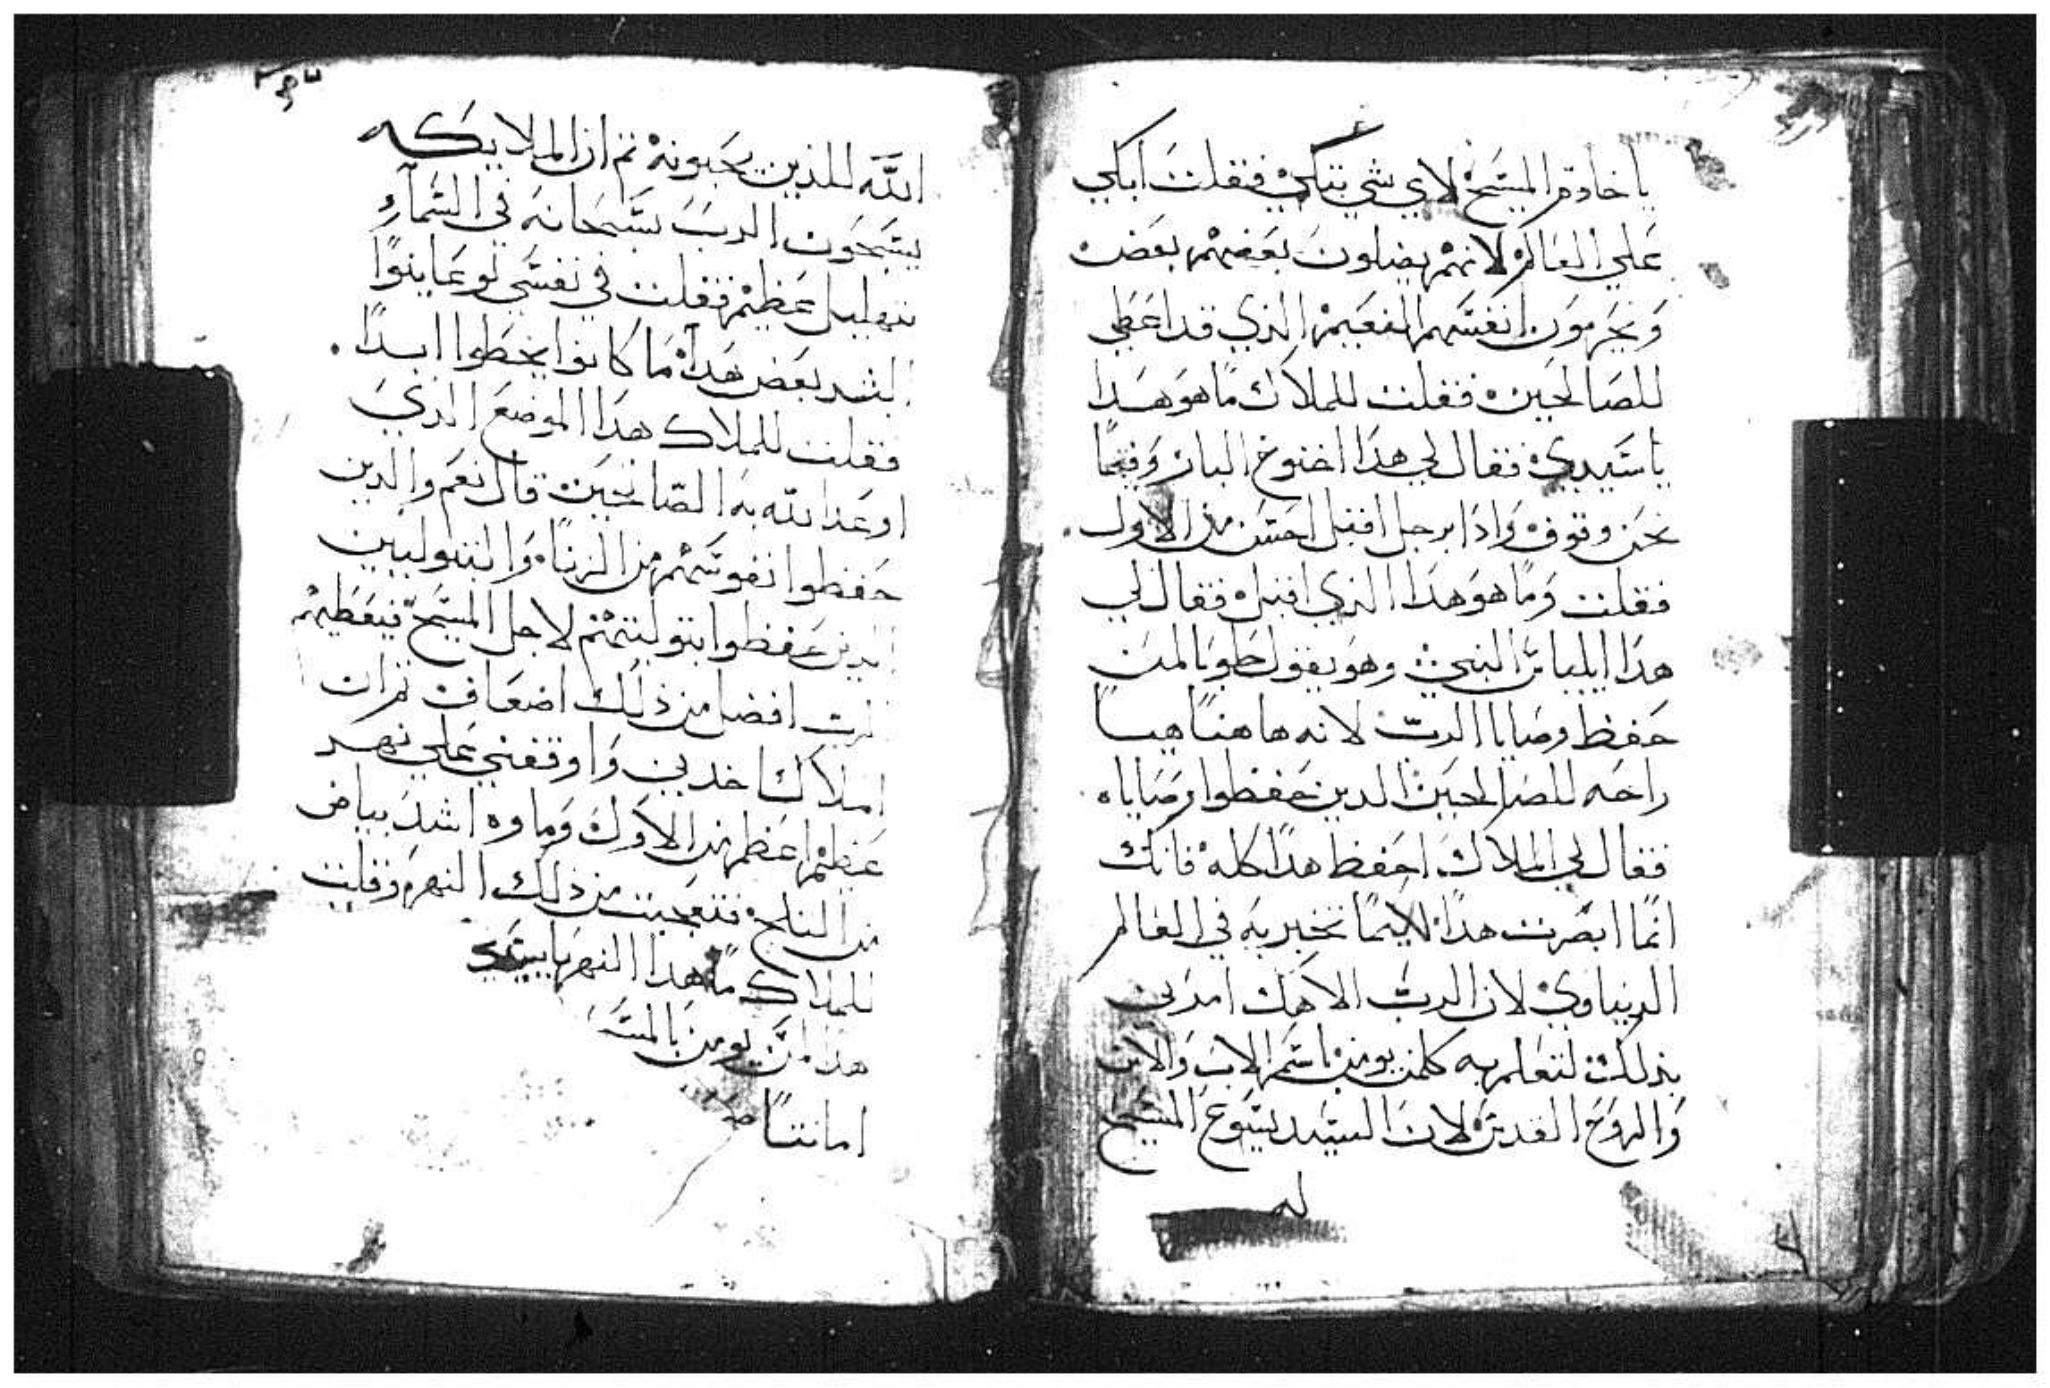 يا خادم المسيح لاي شي تبكي فقلت ابكي
علي العالم لانهم يضلون بعضهم بعض
ويحرمون انفسهم النعيم الذي قد اعطي
للصالحين فقلت للملاك ما هو هدا
يا سيدي فقال لي هدا اخنوخ البار وفيما
نحن وقوف وادا برجل اقبل احسن من الاول.
فقلت وما هو هدا الذي اقبل فقال لي
هدا ايلياس النبي وهو يقول طوبا لمن
حفظ وصايا الرب لانه هاهنا هيا
راحه للصالحين الدين حفظوا وصاياه
فقال لي الملاك احفظ هدا كله فانك
انما ابصرت هدا لايما تخبر به في العالم
الدنياوي لان الرب الاهك امرني
بذلك لتعلم به كلمن يومن باسم الاب والابن
والروح القدس لان السيد يسوع المسيح
له
الله للذين يحبونه تم ان الملايكه
يسبحون الرب سبحانه في السماء
بتهليل عظيم فقلت في نفسي لو عاينوا
البشر بعض هدا ما كانوا يخطوا ابدا.
فقلت للملاك هدا الموضع الذي
اوعد الله به الصالحين قال نعم والدين
حفظوا نفوسهم من الزناه والبتوليين
الدين حفظوا بتوليتهم لاجل المسيح فيعطيهم
الرب افضل من ذلك اضعاف تم ان
املاك اخدني واوقفني علي نهر
عظيم اعظم من الاول وماوه اشد بياض
من التلج فتعجبت من ذلك النهر وقلت
للملاك ما هدا النهر يا سيدي
هدا من يومن بالمس
امانتا